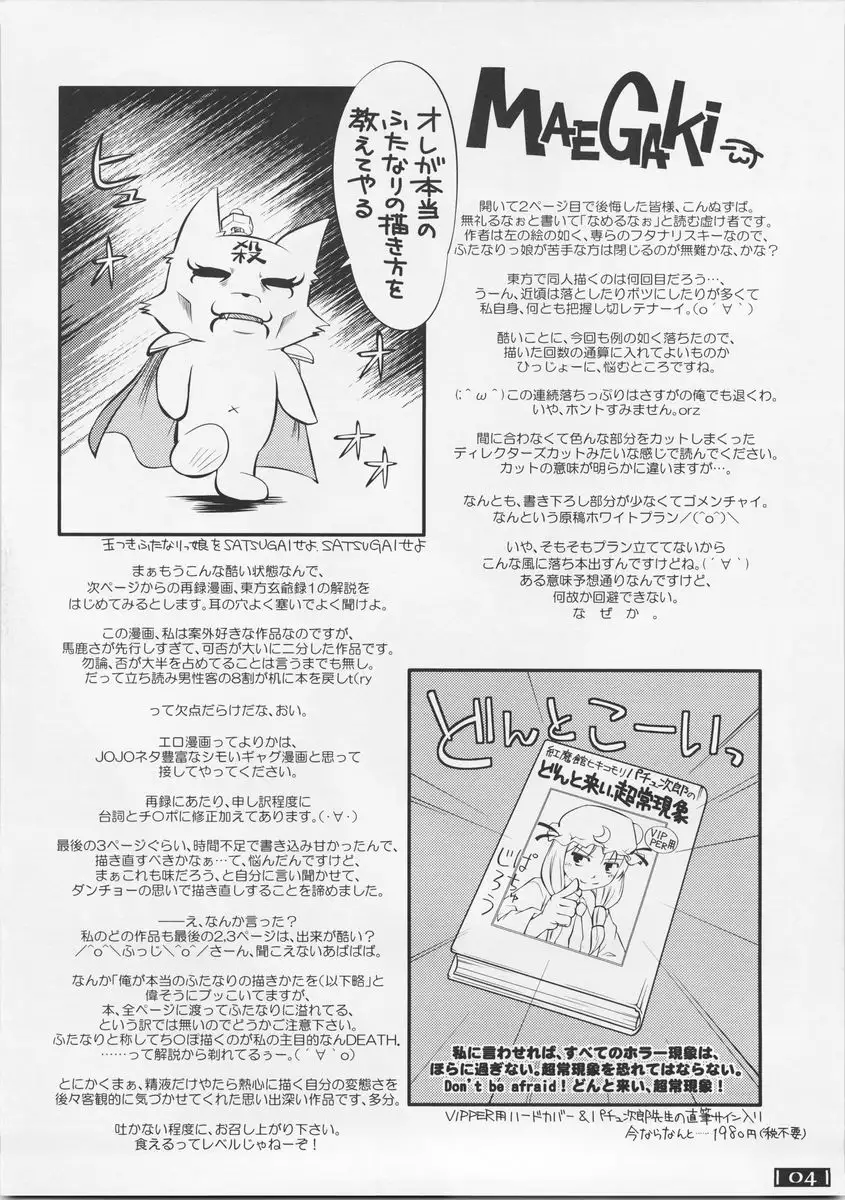 MAEGAKI
開いて2ページ目で後悔した皆様、こんぬずば。
無礼るなぁと書いて「なめるなぁ」と読む虚け者です。
作者は左の絵の如く、専らのフタナリスキーなので、
ふたなりっ娘が苦手な方は閉じるのが無難かな、かな?
東方で同人描くのは何回目だろう…、
うーん、近頃は落としたりボツにしたりが多くて
私自身、何とも把握し切レテナーイ。(o´∀`)
酷いことに、今回も例の如く落ちたので、
描いた回数の通算に入れてよいものか
ひっじょーに、悩むところですね。
(;^ω^)この連続落ちっぷりはさすがの俺でも退くわ。
いや、ホントすみません。orz
間に合わなくて色んな部分をカットしまくった
ディレクターズカットみたいな感じで読んでください。
カットの意味が明らかに違いますが…。
なんとも、書き下ろし部分が少なくてゴメンチャイ。
なんという原稿ホワイトプラン/(^o^)\
いや、そもそもプラン立ててないから
こんな風に落ち本出すんですけどね。(´∀`)
ある意味予想通りなんですけど、
何故か回避できない。
なぜか。
オレが本当の
ふたなりの描き方を
教えてやる
ヒュ
オオオ
殺
玉つきふたなりっ娘をSATSUGAIせよ、SATSUGAIせよ
まぁもうこんな酷い状態なんで、
次ページからの再録漫画、東方玄爺録1の解説を
はじめてみるとします。耳の穴よく塞いでよく聞けよ。
この漫画、私は案外好きな作品なのですが、
馬鹿さが先行しすぎて、可否が大いに二分した作品です。
勿論、否が大半を占めてることは言うまでも無し。
だって立ち読み男性客の8割が机に本を戻しt(ry
って欠点だらけだな、おい。
エロ漫画ってよりかは、
JOJOネタ豊富なシモいギャグ漫画と思って
接してやってください。
再録にあたり、申し訳程度に
台詞とチ○ポに修正加えてあります。(・∀・)
最後の3ページぐらい、時間不足で書き込み甘かったんで、
描き直すべきかなぁ…て、悩んだんですけど、
まぁこれも味だろう、と自分に言い聞かせて、
ダンチョーの思いで描き直しすることを諦めました。
――え、なんか言った?
私のどの作品も最後の2,3ページは、出来が酷い?
/^o^\ふっじ\^o^/さーん、聞こえないあばばば。
なんか「俺が本当のふたなりの描きかたを(以下略」と
偉そうにブッこいてますが、
本、全ページに渡ってふたなりに溢れてる、
という訳では無いのでどうかご注意下さい。
ふたなりと称してち○ぽ描くのが私の主目的なんDEATH.
……って解説から剃れてるぅー。(´∀`o)
とにかくまぁ、精液だけやたら熱心に描く自分の変態さを
後々客観的に気づかせてくれた思い出深い作品です、多分。
吐かない程度に、お召し上がり下さい。
食えるってレベルじゃねーぞ!
どんとこーいっ
紅魔館ヒキコモリパチュ次郎の
どんと来い、超常現象
VIPPER用
ぱちゅ
じろう
私に言わせれば、すべてのホラー現象は、
ほらに過ぎない。超常現象を恐れてはならない。
Don't be afraid! どんと来い、超常現象!
VIPPER用ハードカバー&パチュ次郎先生の直筆サイン入り
今ならなんと……1980円(税不要)
04